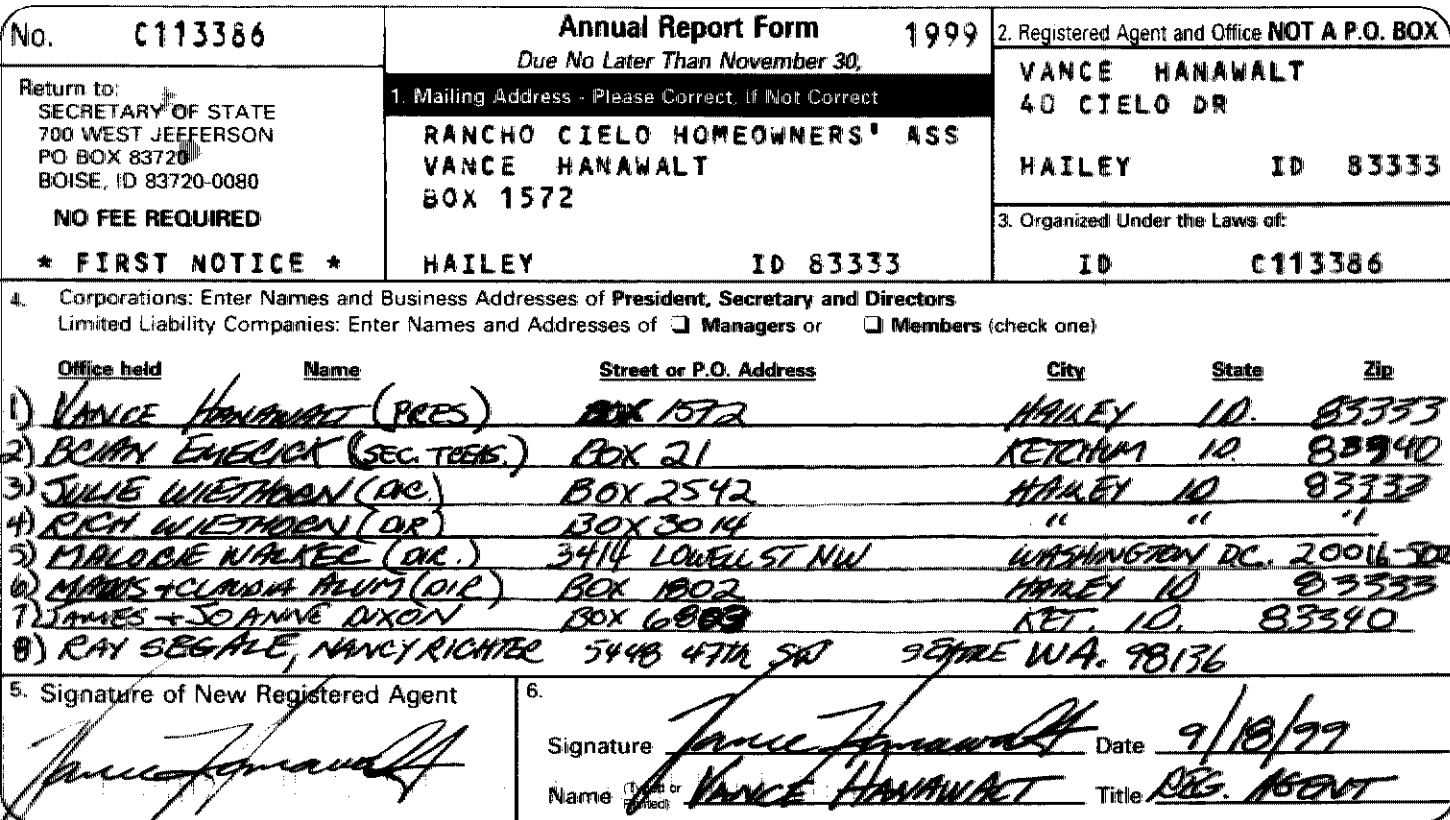 No. C113386
Return to:
SECRETARY OF STATE
700 WEST JEFFERSON
PO BOX 83720
BOISE, ID 83720-0080
NO FEE REQUIRED
* FIRST NOTICE *
Annual Report Form 1999
Due No Later Than November 30,
1. Mailing Address - Please Correct, If Not Correct
RANCHO CIELO HOMEOWNERS' ASS
VANCE HANAWALT
BOX 1572
HAILEY ID 83333
2. Registered Agent and Office NOT A P.O. BOX
VANCE HANAWALT
40 CIELO DR
HAILEY ID 83333
3. Organized Under the Laws of:
ID C113386
4. Corporations: Enter Names and Business Addresses of President, Secretary and Directors
Limited Liability Companies: Enter Names and Addresses of ❑ Managers or ❑ Members (check one)
Office held Name Street or P.O. Address City State Zip
1) VANCE HANAWALT (PRES) BOX 1572 HAILEY ID. 83333
2) BRIAN EMERICK (SEC. TREAS.) BOX 21 KETCHUM ID. 83340
3) JULIE WIETHORN (DIR.) BOX 2542 HAILEY ID 83333
4) RICH WIETHORN (DIR) BOX 3014 " " "
5) MALORIE WALKER (DIR.) 3414 LOWELL ST NW WASHINGTON DC. 20016-
6) + CLAUDIA ALUM (DIR) BOX 1802 HAILEY ID 83333
7) JAMES + JOANNE DIXON BOX KET. ID. 83340
8) RAY SEGALE, NANCY RICHTER 5448 47TH SW SEATTLE WA. 98136
5. Signature of New Registered Agent
Vance Hanawalt
6.
Signature Vance Hanawalt Date 9/18/99
Name (Typed or Printed) VANCE HANAWALT Title REG. AGENT